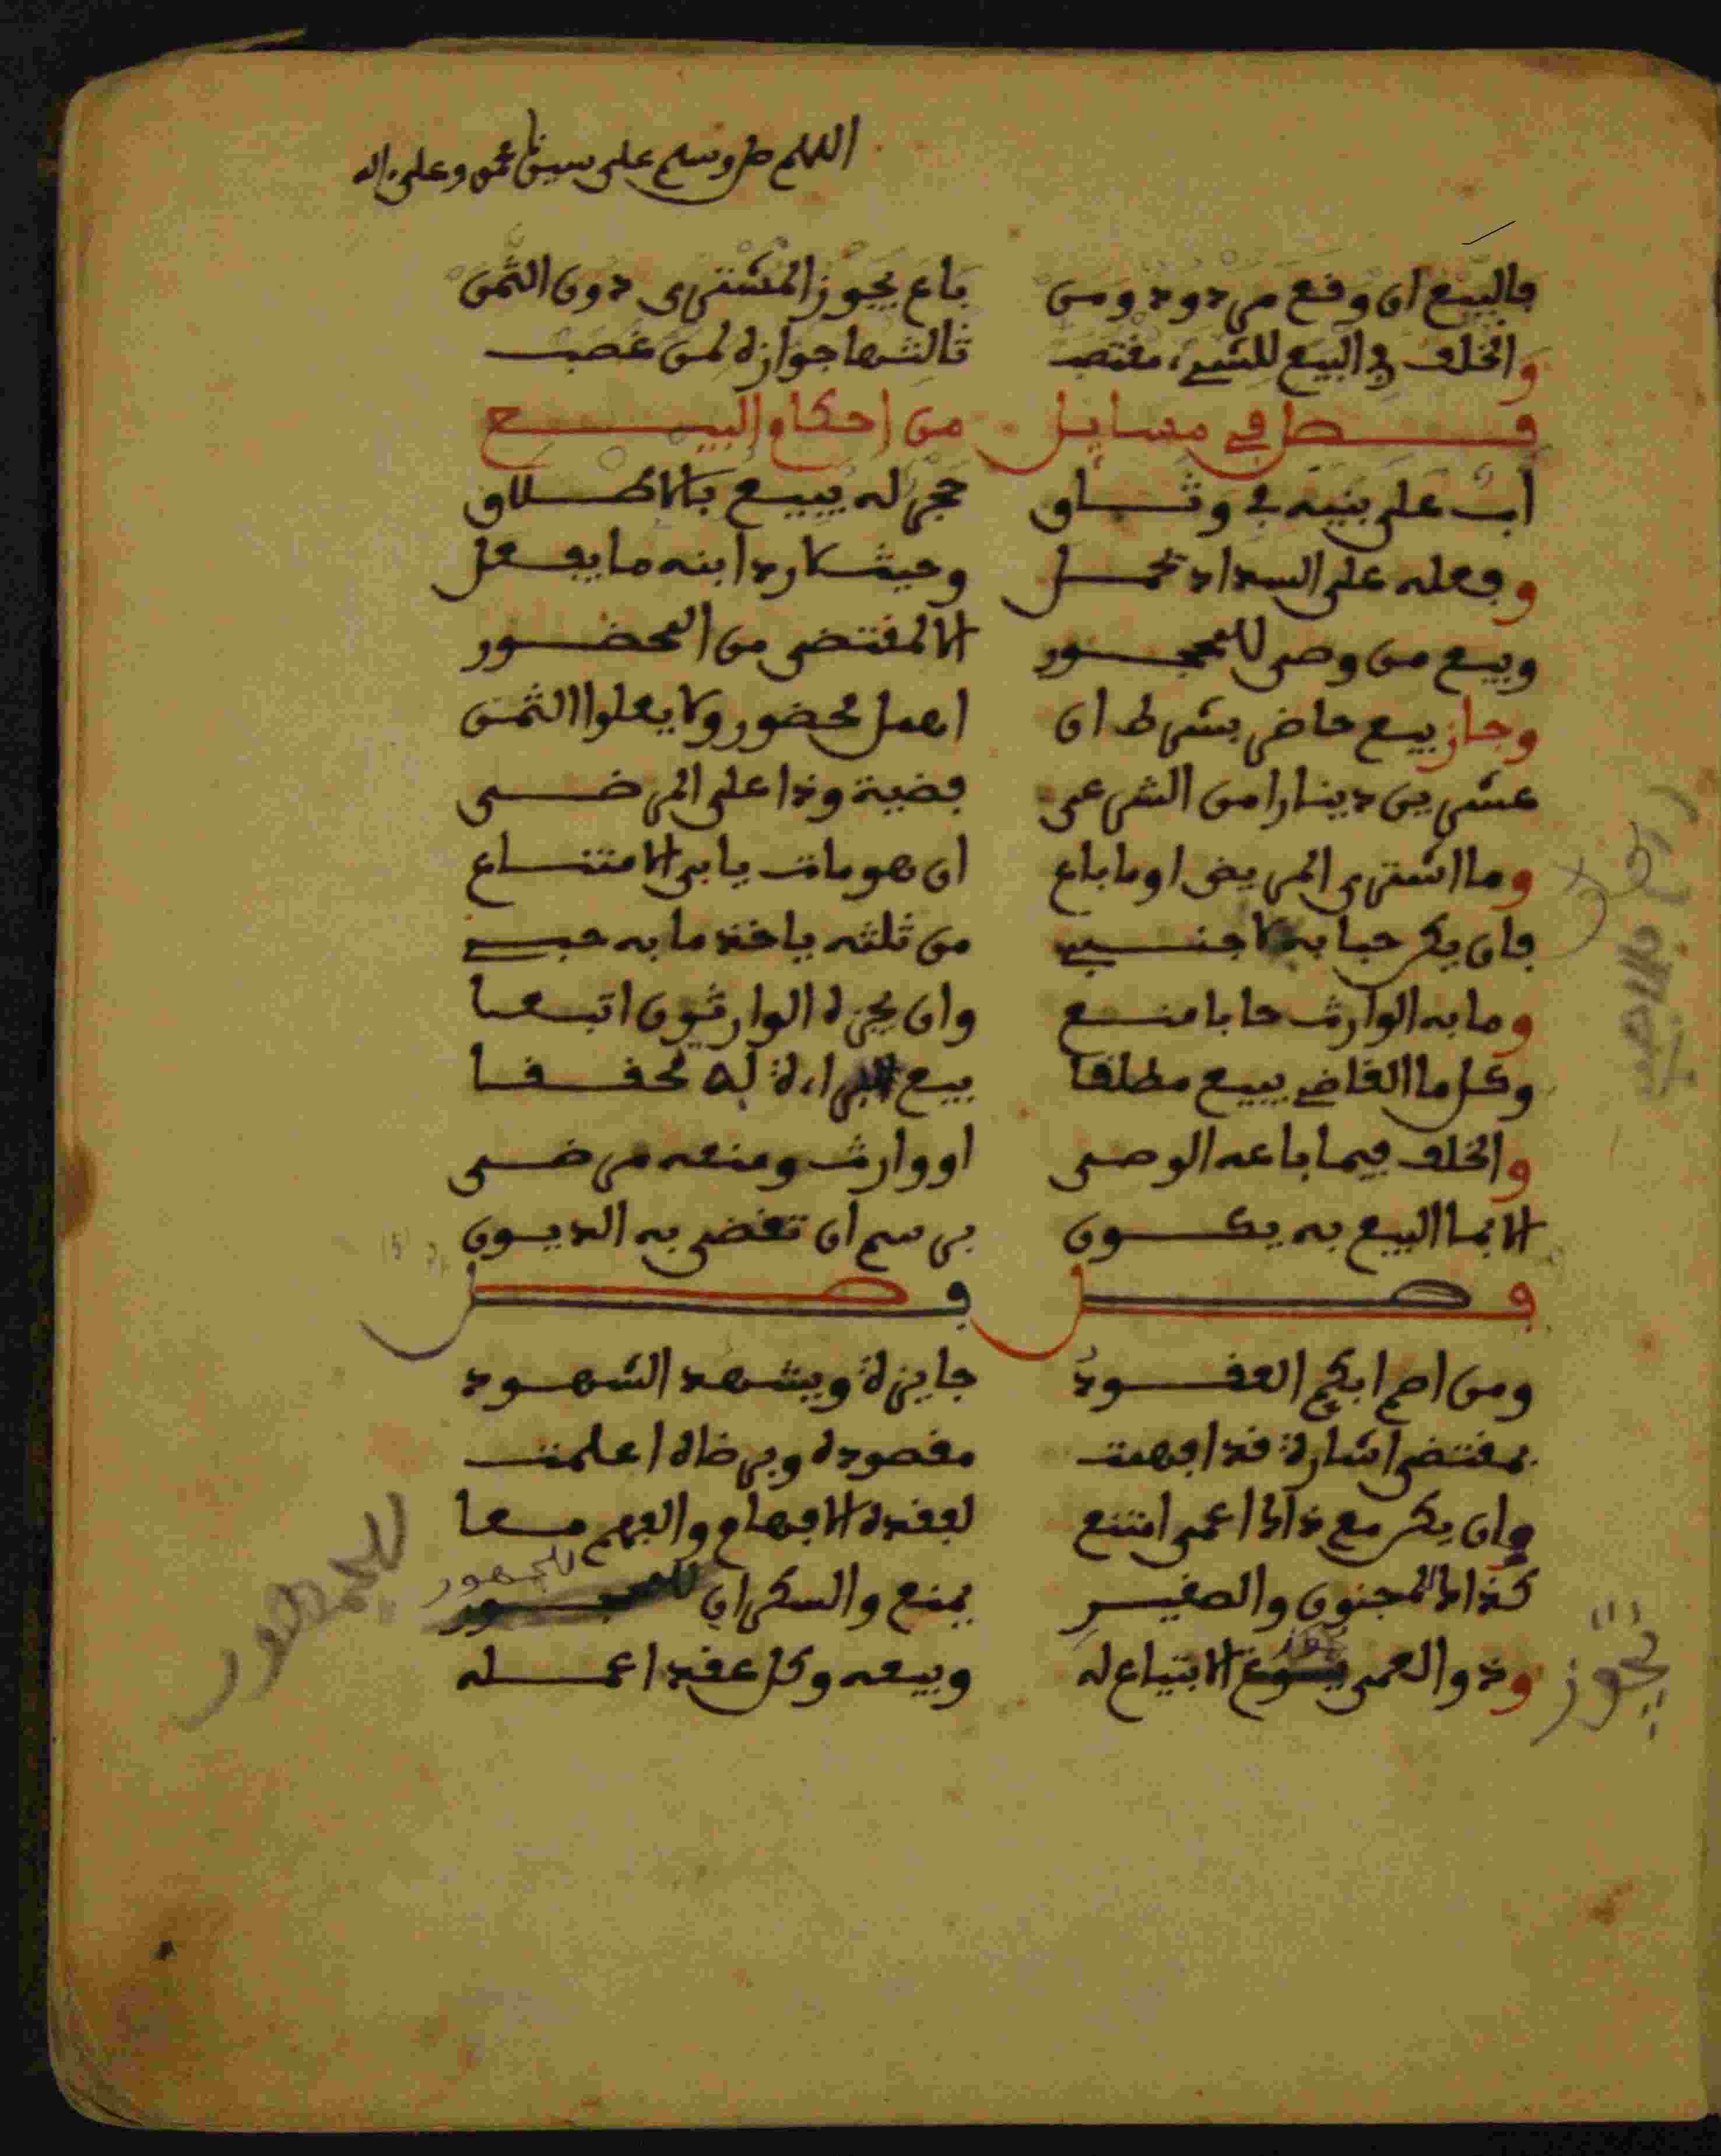 اللهم صل وسلم على سيدنا محمد وعلى ءاله
فالبيع ان وقع مردود ومن باع يجوز المشترى دون الثمن
والخلف في البيع للشيء مغتصب ثالثها جوازه لمن غصب
فصل في مسايل من احكام البيع
اب على بنيه في وثاق حجر له يبيع بالاطلاق
وفعله على السداد يحمل وحيث لا رد ابنه ما يفعل
وبيع من وصي للمحجور الا لمقتضى من المحضور
وجاز بيع حاضن بشرط ان اهمل محضور ولا يعلوا الثمن
عشرين دينارا من الشرعي فضية وذا على المرضي
وما اشترى المريض او ما باع ان هو مات يابى الامتناع
فان يكن حبا به لاجنبي من ثلثه ياخذ ما به حبي
وما به الوارث حابا منع وان يجزه الوارثون اتبعا
وكل ما القاضي يبيع مطلقا بيع البراءة به تحققا
والخلف فيما باعه الوصي او وارث ومنعه مرضي
الا بما البيع به يكون برسم ان تقضى به الديون
فصل فصل
ومن اصم ابكم العقود جايزة ويشهد الشهود
بمقتضى اشارة قد افهمت مقصوده وبرضاه اعلمت
وان يكن مع ذاك اعمى امتنع لفقده الافهام والفهم معا
كذاك للمجنون والصغير يمنع والسكران للجمهور
وذو العمى يسوغ الابتياع له وبيعه وكل عقد اعمله
للجمهور
يجوز